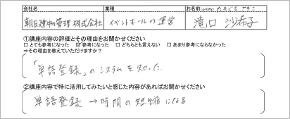 会社名 業種 お名前
朝日建物管理 株式会社 イベントホールの運営 滝口 沙奈子
①講座内容の評価とその理由をお聞かせください
□とても参考になった ☑参考になった □どちらとも言えない □あまり参考にならなかった
その理由を教えていただけますか?
「単語登録」のシステムを知った
②講座内容で特に活用してみたいと感じた内容があればお聞かせください
単語登録 → 時間の短縮になる